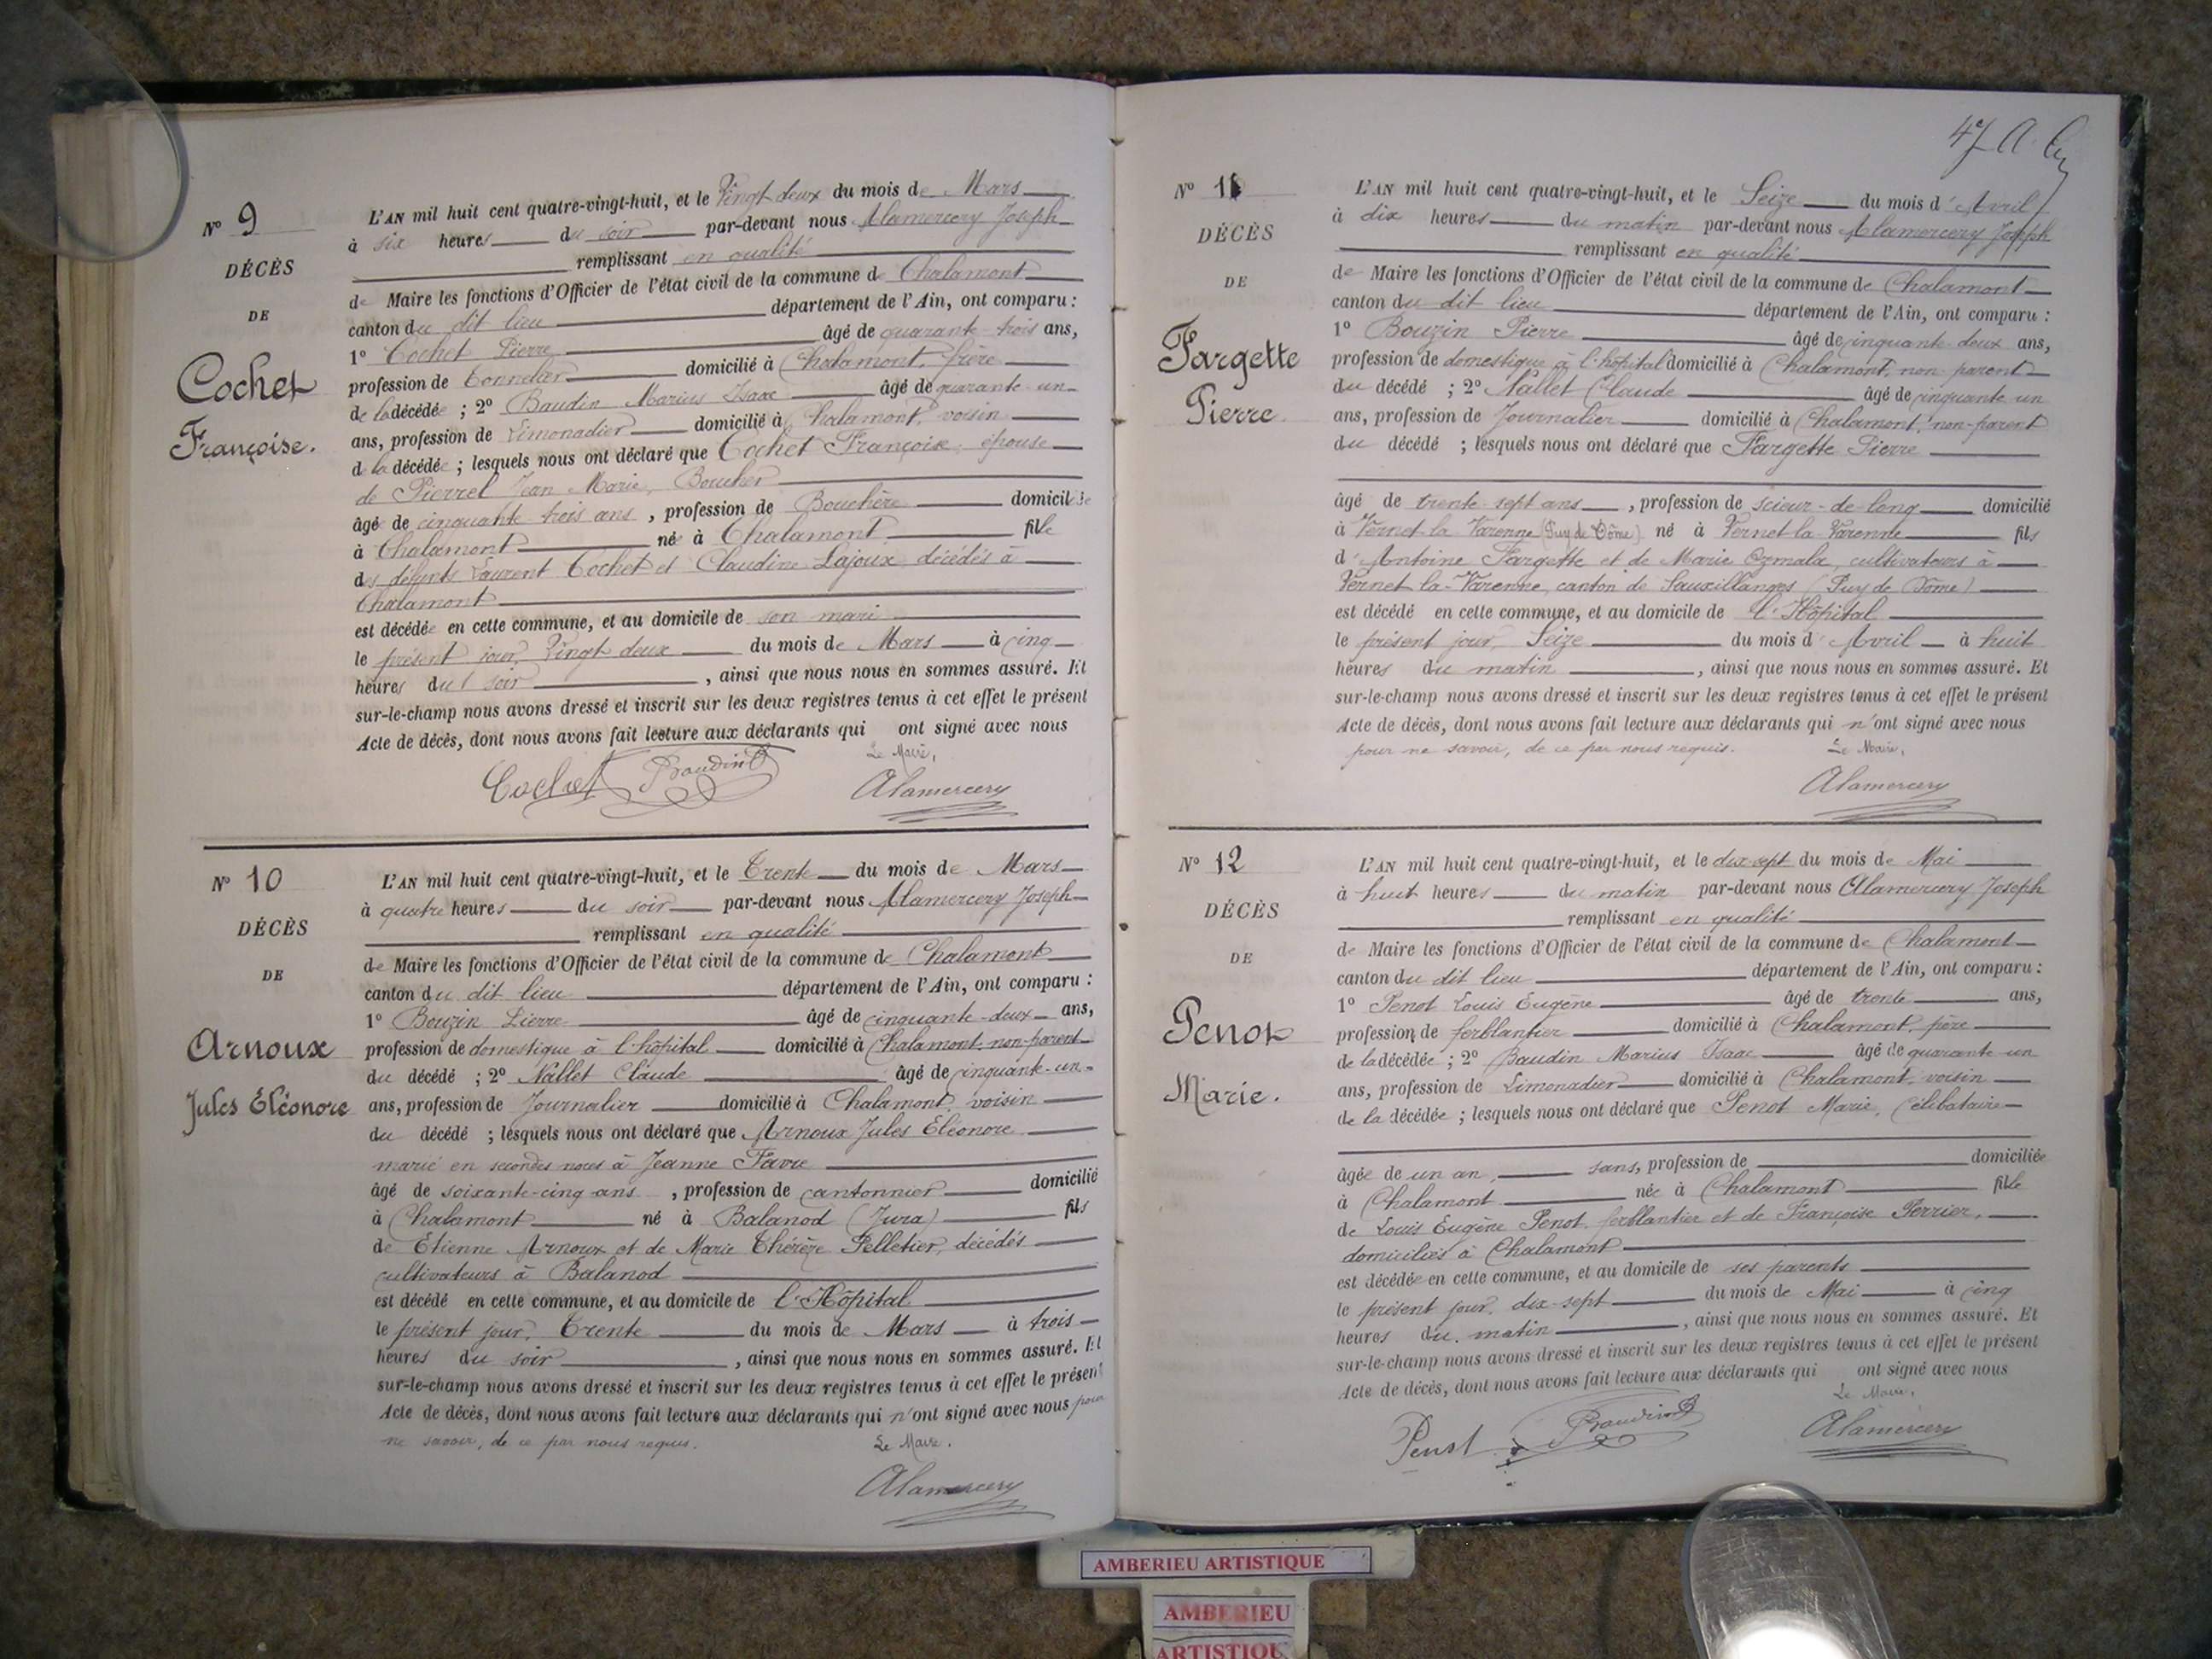 Nº 9
DÉCÈS
DE
Cochet
Françoise.
L'AN mil huit cent quatre-vingt-huit, et le Vingt deux du mois de Mars
à six heures du soir par-devant nous Alamercery Joseph
remplissant en qualité
de Maire les fonctions d'Officier de l'état civil de la commune de Chalamont
canton du dit lieu département de l'Ain, ont comparu :
1º Cochet Pierre âgé de quarante-trois ans,
profession de Tonnelier domicilié à Chalamont, frère
de la décédée ; 2º Baudin Marius Isaac âgé de quarante-un
ans, profession de Limonadier domicilié à Chalamont, voisin
d la décédée ; lesquels nous ont déclaré que Cochet Françoise, épouse
de Pierrel Jean Marie, Boucher
âgé de cinquante trois ans, profession de Bouchère domiciliée
à Chalamont née à Chalamont fille
des défunts Laurent Cochet et Claudine Lajoux décédés à
Chalamont
est décédée en cette commune, et au domicile de son mari
le présent jour, Vingt deux du mois de Mars à cinq
heures du soir, ainsi que nous nous en sommes assuré. Et
sur-le-champ nous avons dressé et inscrit sur les deux registres tenus à cet effet le présent
Acte de décès, dont nous avons fait lecture aux déclarants qui ont signé avec nous
Le Maire,
Cochet Baudin Alamercery
Nº 10
DÉCÈS
DE
Arnoux
Jules Eléonore
L'AN mil huit cent quatre-vingt-huit, et le Trente du mois de Mars
à quatre heures du soir par-devant nous Alamercery Joseph
remplissant en qualité
de Maire les fonctions d'Officier de l'état civil de la commune de Chalamont
canton du dit lieu département de l'Ain, ont comparu :
1º Bouzin Pierre âgé de cinquante-deux ans,
profession de domestique à l'hôpital domicilié à Chalamont, non-parent
du décédé ; 2º Nallet Claude âgé de cinquante-un
ans, profession de Journalier domicilié à Chalamont, voisin
du décédé ; lesquels nous ont déclaré que Arnoux Jules Eléonore
marié en secondes noces à Jeanne Favre
âgé de soixante-cinq ans, profession de cantonnier domicilié
à Chalamont né à Balanod (Jura) fils
de Etienne Arnoux et de Marie Thérèze Pelletier, décédés
cultivateurs à Balanod
est décédé en cette commune, et au domicile de l'Hôpital
le présent jour, Trente du mois de Mars à trois
heures du soir, ainsi que nous nous en sommes assuré. Et
sur-le-champ nous avons dressé et inscrit sur les deux registres tenus à cet effet le présent
Acte de décès, dont nous avons fait lecture aux déclarants qui n'ont signé avec nous pour
ne savoir, de ce par nous requis. Le Maire.
Alamercery
47 A
Nº 11
DÉCÈS
DE
Fargette
Pierre.
L'AN mil huit cent quatre-vingt-huit, et le Seize du mois d'Avril
à dix heures du matin par-devant nous Alamercery Joseph
remplissant en qualité
de Maire les fonctions d'Officier de l'état civil de la commune de Chalamont
canton du dit lieu département de l'Ain, ont comparu :
1º Bouzin Pierre âgé de cinquante-deux ans,
profession de domestique à l'hôpital domicilié à Chalamont, non parent
du décédé ; 2º Nallet Claude âgé de cinquante un
ans, profession de Journalier domicilié à Chalamont, non-parent
du décédé ; lesquels nous ont déclaré que Fargette Pierre
âgé de trente-sept ans, profession de scieur-de-long domicilié
à Vernet-la-Varenne (Puy de Dôme) né à Vernet-la-Varenne fils
d'Antoine Fargette et de Marie Ozmala, cultivateurs à
Vernet-la-Varenne, canton de Sauxillanges (Puy de Dôme)
est décédé en cette commune, et au domicile de l'Hôpital
le présent jour, Seize du mois d'Avril à huit
heures du matin, ainsi que nous nous en sommes assuré. Et
sur-le-champ nous avons dressé et inscrit sur les deux registres tenus à cet effet le présent
Acte de décès, dont nous avons fait lecture aux déclarants qui n'ont signé avec nous
pour ne savoir, de ce par nous requis. Le Maire,
Alamercery
Nº 12
DÉCÈS
DE
Penot
Marie.
L'AN mil huit cent quatre-vingt-huit, et le dix-sept du mois de Mai
à huit heures du matin par-devant nous Alamercery Joseph
remplissant en qualité
de Maire les fonctions d'Officier de l'état civil de la commune de Chalamont
canton du dit lieu département de l'Ain, ont comparu :
1º Penot Louis Eugène âgé de trente ans,
profession de ferblantier domicilié à Chalamont, père
de la décédée ; 2º Baudin Marius Isaac âgé de quarante-un
ans, profession de Limonadier domicilié à Chalamont, voisin
de la décédée ; lesquels nous ont déclaré que Penot Marie, Célibataire
âgée de un an, sans, profession de domiciliée
à Chalamont née à Chalamont fille
de Louis Eugène Penot, ferblantier et de Françoise Perrier,
domiciliés à Chalamont
est décédée en cette commune, et au domicile de ses parents
le présent jour, dix-sept du mois de Mai à cinq
heures du matin, ainsi que nous nous en sommes assuré. Et
sur-le-champ nous avons dressé et inscrit sur les deux registres tenus à cet effet le présent
Acte de décès, dont nous avons fait lecture aux déclarants qui ont signé avec nous
Le Maire,
Penot Baudin Alamercery
AMBERIEU ARTISTIQUE
AMBERIEU
ARTISTIQU